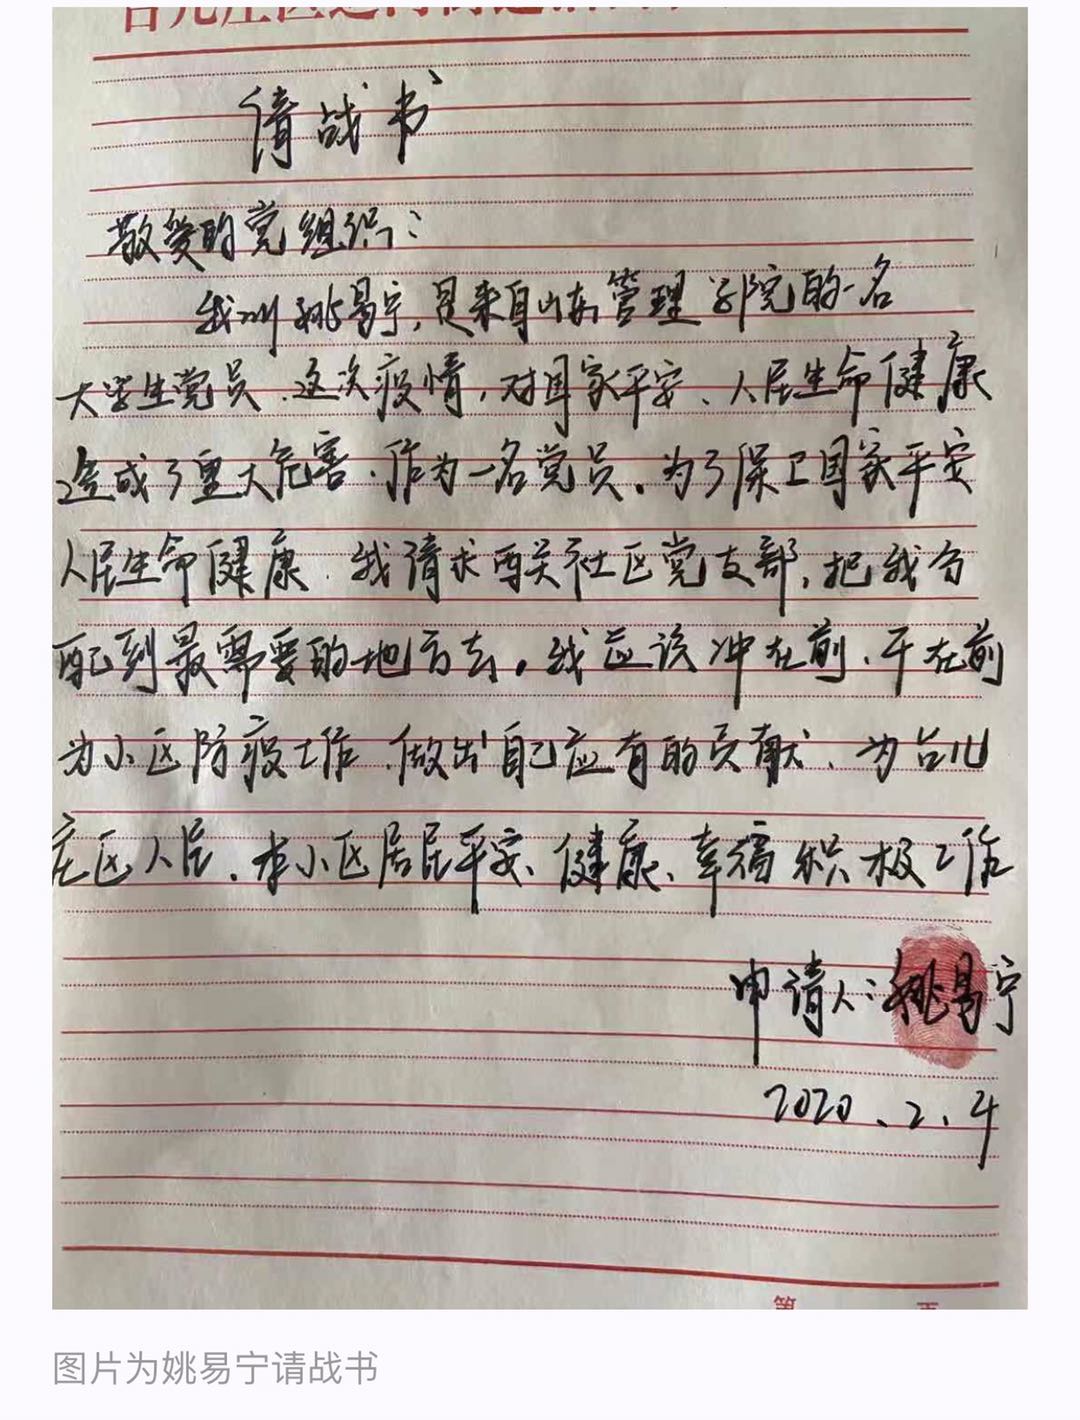 请战书
敬爱的党组织：
我叫姚易宁，是来自山东管理学院的一名
大学生党员、这次疫情，对国家平安、人民生命健康
造成了重大危害．作为一名党员、为了保卫国家平安
人民生命健康．我请求西关社区党支部，把我分
配到最需要的地方去。我应该冲在前、干在前
为小区防疫工作、做出自己应有的贡献、为台儿
庄区人民、本小区居民平安、健康、幸福积极工作
申请人：姚易宁
2020.2.4
第 页
图片为姚易宁请战书